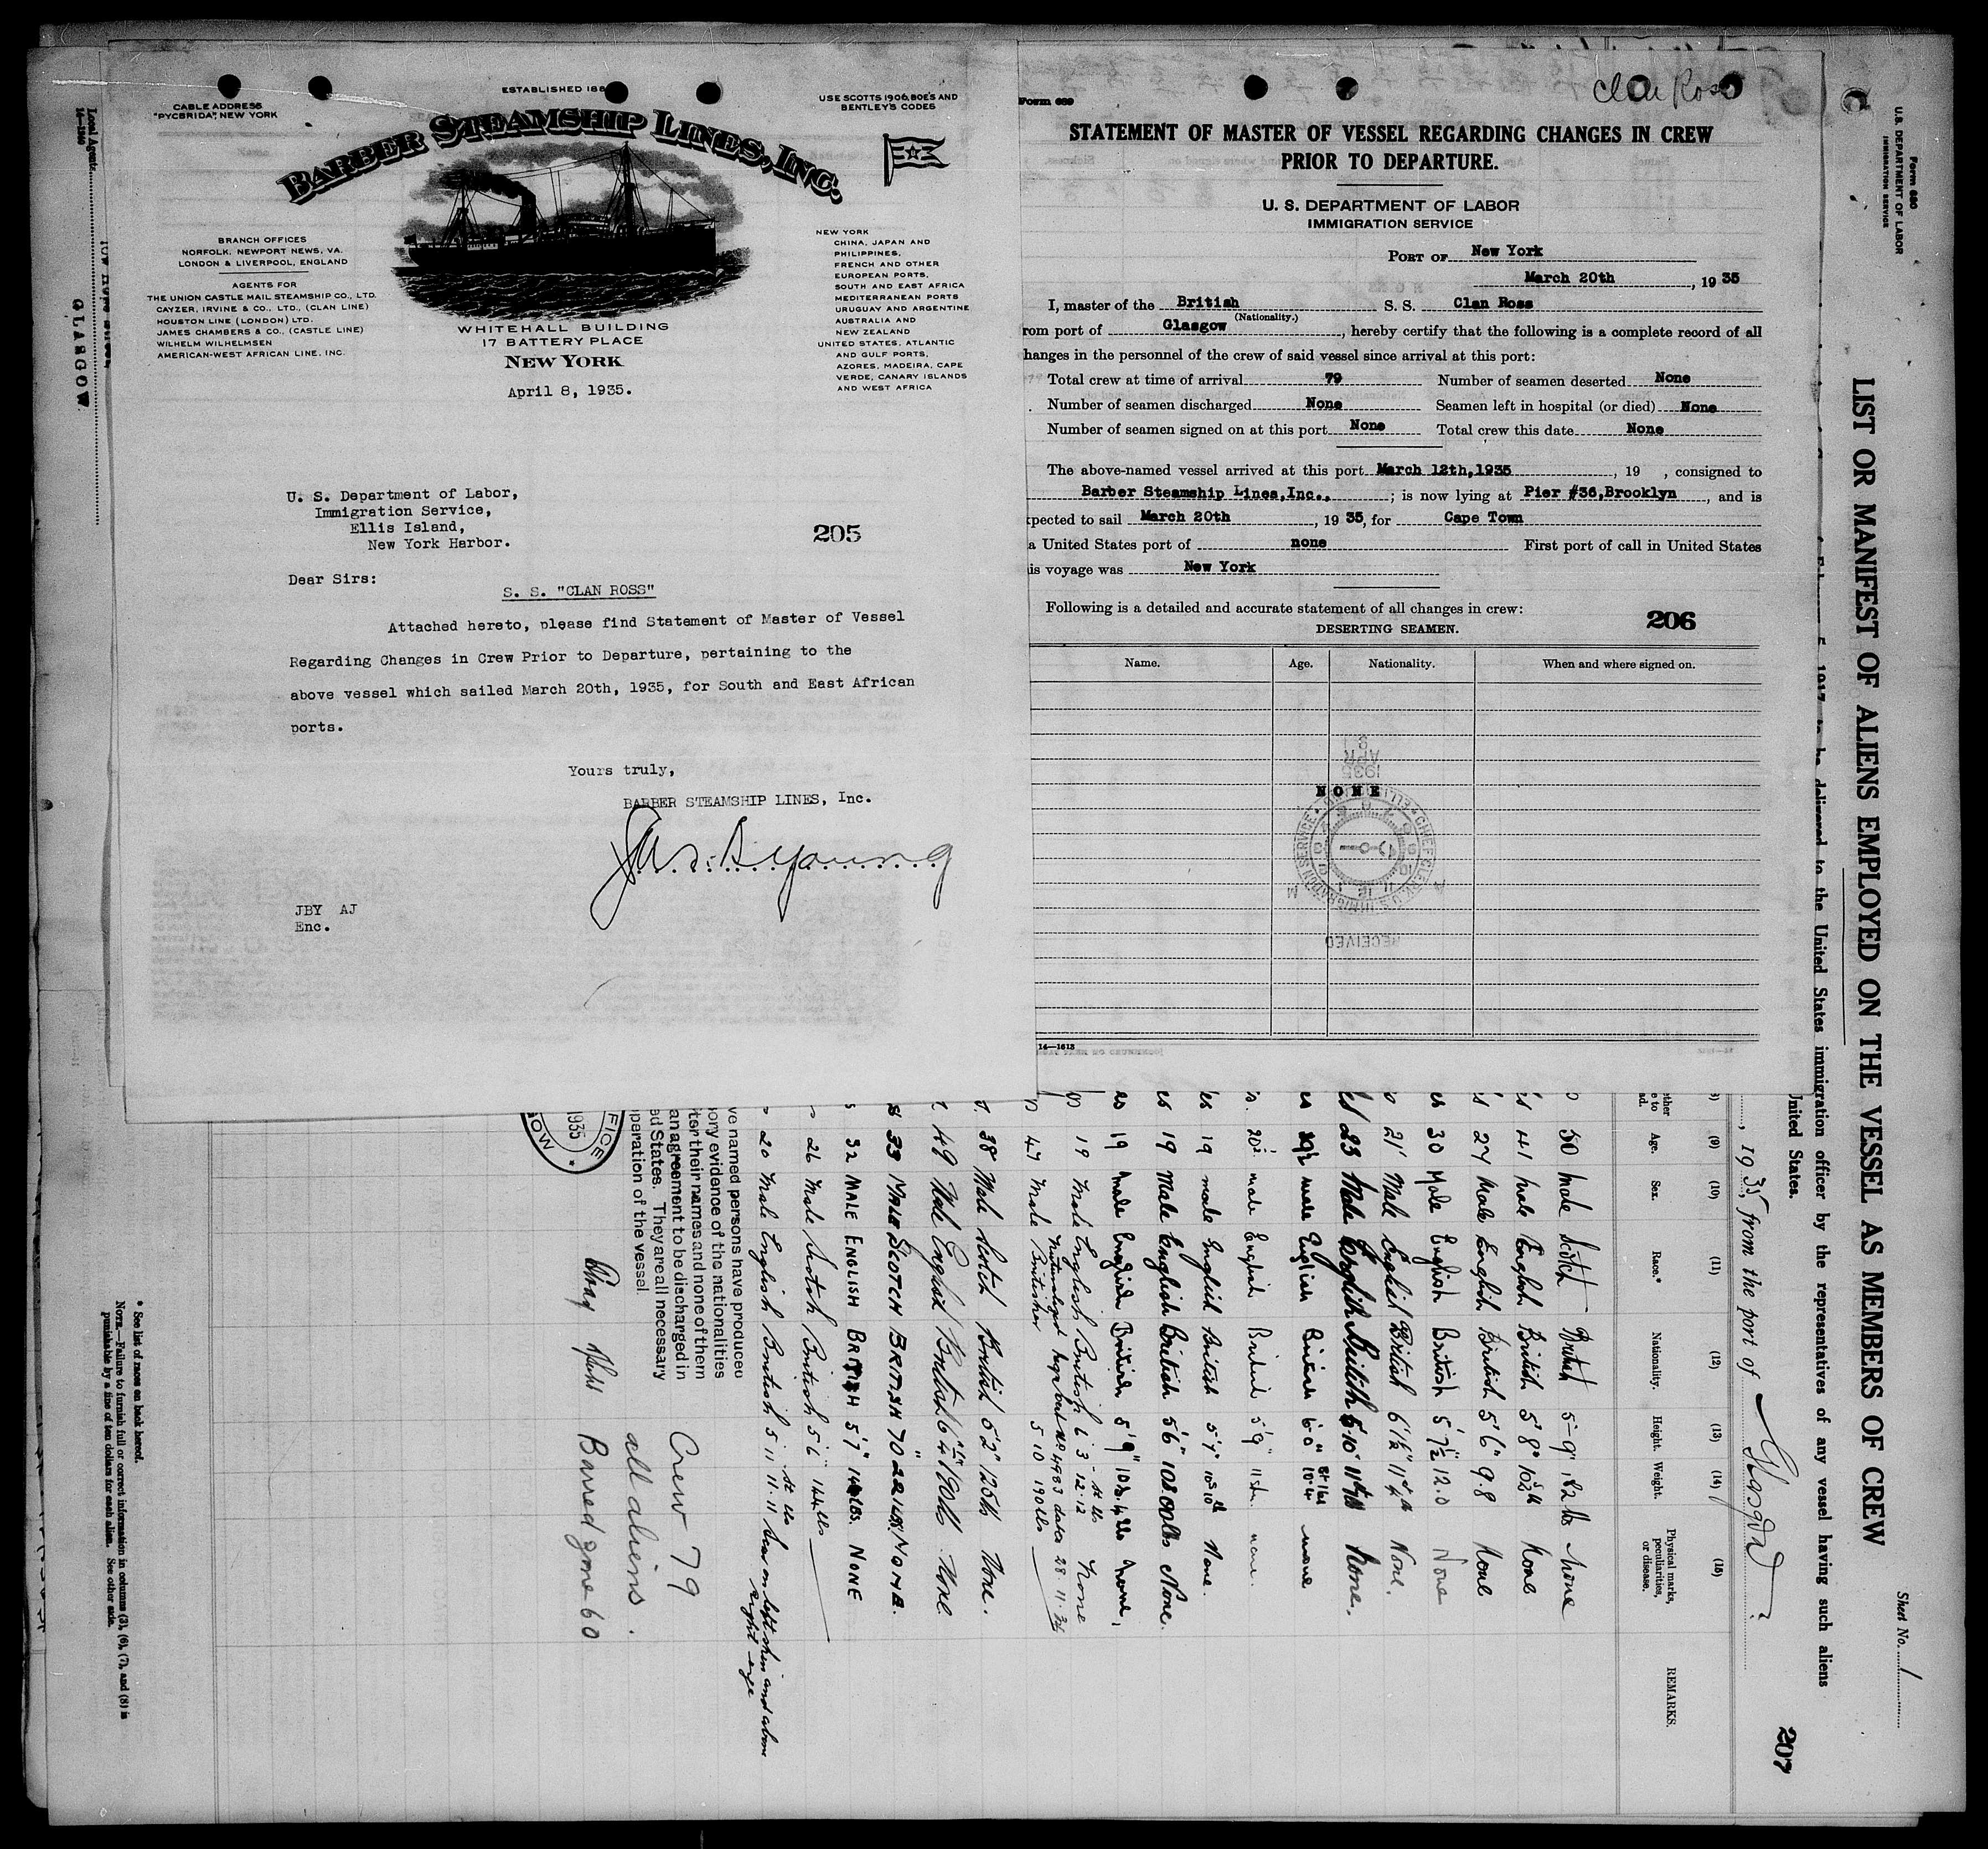 CABLE ADDRESS
"PYCBRIDA", NEW YORK
ESTABLISHED 188
USE SCOTTS 1906, BOE'S AND
BENTLEY'S CODES
BARBER STEAMSHIP LINES, INC.
BRANCH OFFICES
NORFOLK, NEWPORT NEWS, VA.
LONDON & LIVERPOOL, ENGLAND
AGENTS FOR
THE UNION CASTLE MAIL STEAMSHIP CO., LTD.
CAYZER, IRVINE & CO., LTD., (CLAN LINE)
HOUSTON LINE (LONDON) LTD.
JAMES CHAMBERS & CO., (CASTLE LINE)
WILHELM WILHELMSEN
AMERICAN-WEST AFRICAN LINE, INC.
WHITEHALL BUILDING
17 BATTERY PLACE
NEW YORK
NEW YORK
CHINA, JAPAN AND
PHILIPPINES,
FRENCH AND OTHER
EUROPEAN PORTS,
SOUTH AND EAST AFRICA
MEDITERRANEAN PORTS
URUGUAY AND ARGENTINE
AUSTRALIA AND
NEW ZEALAND
UNITED STATES, ATLANTIC
AND GULF PORTS,
AZORES, MADEIRA, CAPE
VERDE, CANARY ISLANDS
AND WEST AFRICA
April 8, 1935.
U. S. Department of Labor,
Immigration Service,
Ellis Island,
New York Harbor.
205
Dear Sirs:
S. S. "CLAN ROSS"
Attached hereto, please find Statement of Master of Vessel
Regarding Changes in Crew Prior to Departure, pertaining to the
above vessel which sailed March 20th, 1935, for South and East African
ports.
Yours truly,
BARBER STEAMSHIP LINES, Inc.
Jas. B Young
JBY AJ
Enc.
Clan Ross
Form 689
STATEMENT OF MASTER OF VESSEL REGARDING CHANGES IN CREW
PRIOR TO DEPARTURE.
U. S. DEPARTMENT OF LABOR
IMMIGRATION SERVICE
PORT OF New York
March 20th, 1935
I, master of the British S. S. Clan Ross
(Nationality.)
rom port of Glasgow, hereby certify that the following is a complete record of all
hanges in the personnel of the crew of said vessel since arrival at this port:
Total crew at time of arrival 79 Number of seamen deserted None
Number of seamen discharged None Seamen left in hospital (or died) None
Number of seamen signed on at this port None Total crew this date None
The above-named vessel arrived at this port March 12th, 1935, 19 , consigned to
Barber Steamship Lines, Inc., ; is now lying at Pier #36, Brooklyn, and is
xpected to sail March 20th, 1935, for Cape Town
a United States port of none First port of call in United States
is voyage was New York
Following is a detailed and accurate statement of all changes in crew:
206
DESERTING SEAMEN.
Name. Age. Nationality. When and where signed on.
NONE
APR
1935
CHIEF CLERK U.S. IMMIGRATION SERVICE
RECEIVED
14—1613
Form 680
U.S. DEPARTMENT OF LABOR
IMMIGRATION SERVICE
Sheet No. 1
LIST OR MANIFEST OF ALIENS EMPLOYED ON THE VESSEL AS MEMBERS OF CREW
1917, to be delivered to the United States immigration officer by the representatives of any vessel having such aliens
United States.
207
, 1935, from the port of Glasgow
(9) (10) (11) (12) (13) (14) (15)
Age. Sex. Race.* Nationality. Height. Weight. Physical marks, peculiarities, or disease. REMARKS.
50 Male Scotch British 5-9" None
41 Male English British 5'8" None
27 Male English British 5'6" 9.8 None
30 Male English British 5'7½" 12.0 None
21 Male English British 6'1½" None.
23 Male English British 5'10" None.
male English British 6'0" none
male English British 5'9" none.
19 male English British 5'7" None.
19 Male English British 5'6" None.
19 Male English British 5'9" None.
19 Male English British 6 3 12.12 None
47 Male British 5 10 190 lbs
38 Male Scotch British 5'2" 125 lbs None.
49 Male English British None.
33 MALE SCOTCH BRITISH NONE.
32 MALE ENGLISH BRITISH 5'7" 144 LBS. NONE
26 Male Scotch British 5'6" 144 lbs
20 Male English British 5 11 11.11 Scar on left shin and above
right eye
ve named persons have produced
ory evidence of the nationalities
t for their names and none of them
an agreement to be discharged in
ed States. They are all necessary
peration of the vessel.
Crew 79
all aliens.
Barred zone 60
1935
Local Agents
14—1240
GLASGOW
* See list of races on back hereof.
NOTE.—Failure to furnish full or correct information in columns (3), (6), (7), and (8) is
punishable by a fine of ten dollars for each alien. See other side.